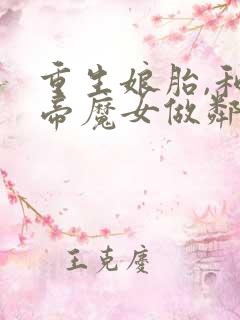 重生娘胎,和
帝魔女做鄰
王克慶